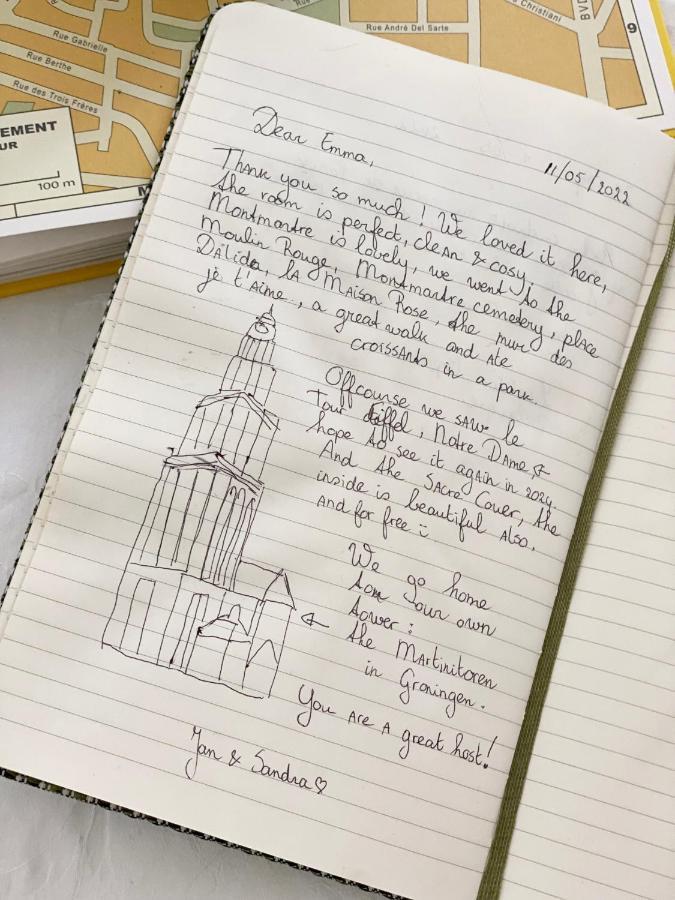 Rue Gabrielle
Rue Berthe
Rue des Trois Frères
EMENT
UR
100 m
M
Rue
Rue André Del Sarte
Christiani
BVD
9
Dear Emma,
11/05/2022
Thank you so much! We loved it here,
the room is perfect, clean & cosy.
Montmartre is lovely, we went to the
Moulin Rouge, Montmartre cemetery, place
Dalida, la Maison Rose, the mur des
je t'aime, a great walk and ate
croissants in a park.
Offcourse we saw le
Tour Eiffel, Notre Dame &
hope to see it again in 2024.
And the Sacré Couer, the
inside is beautiful also.
and for free :
We go home
to our own
tower:
the Martinitoren
in Groningen.
You are a great host!
Jan & Sandra♡